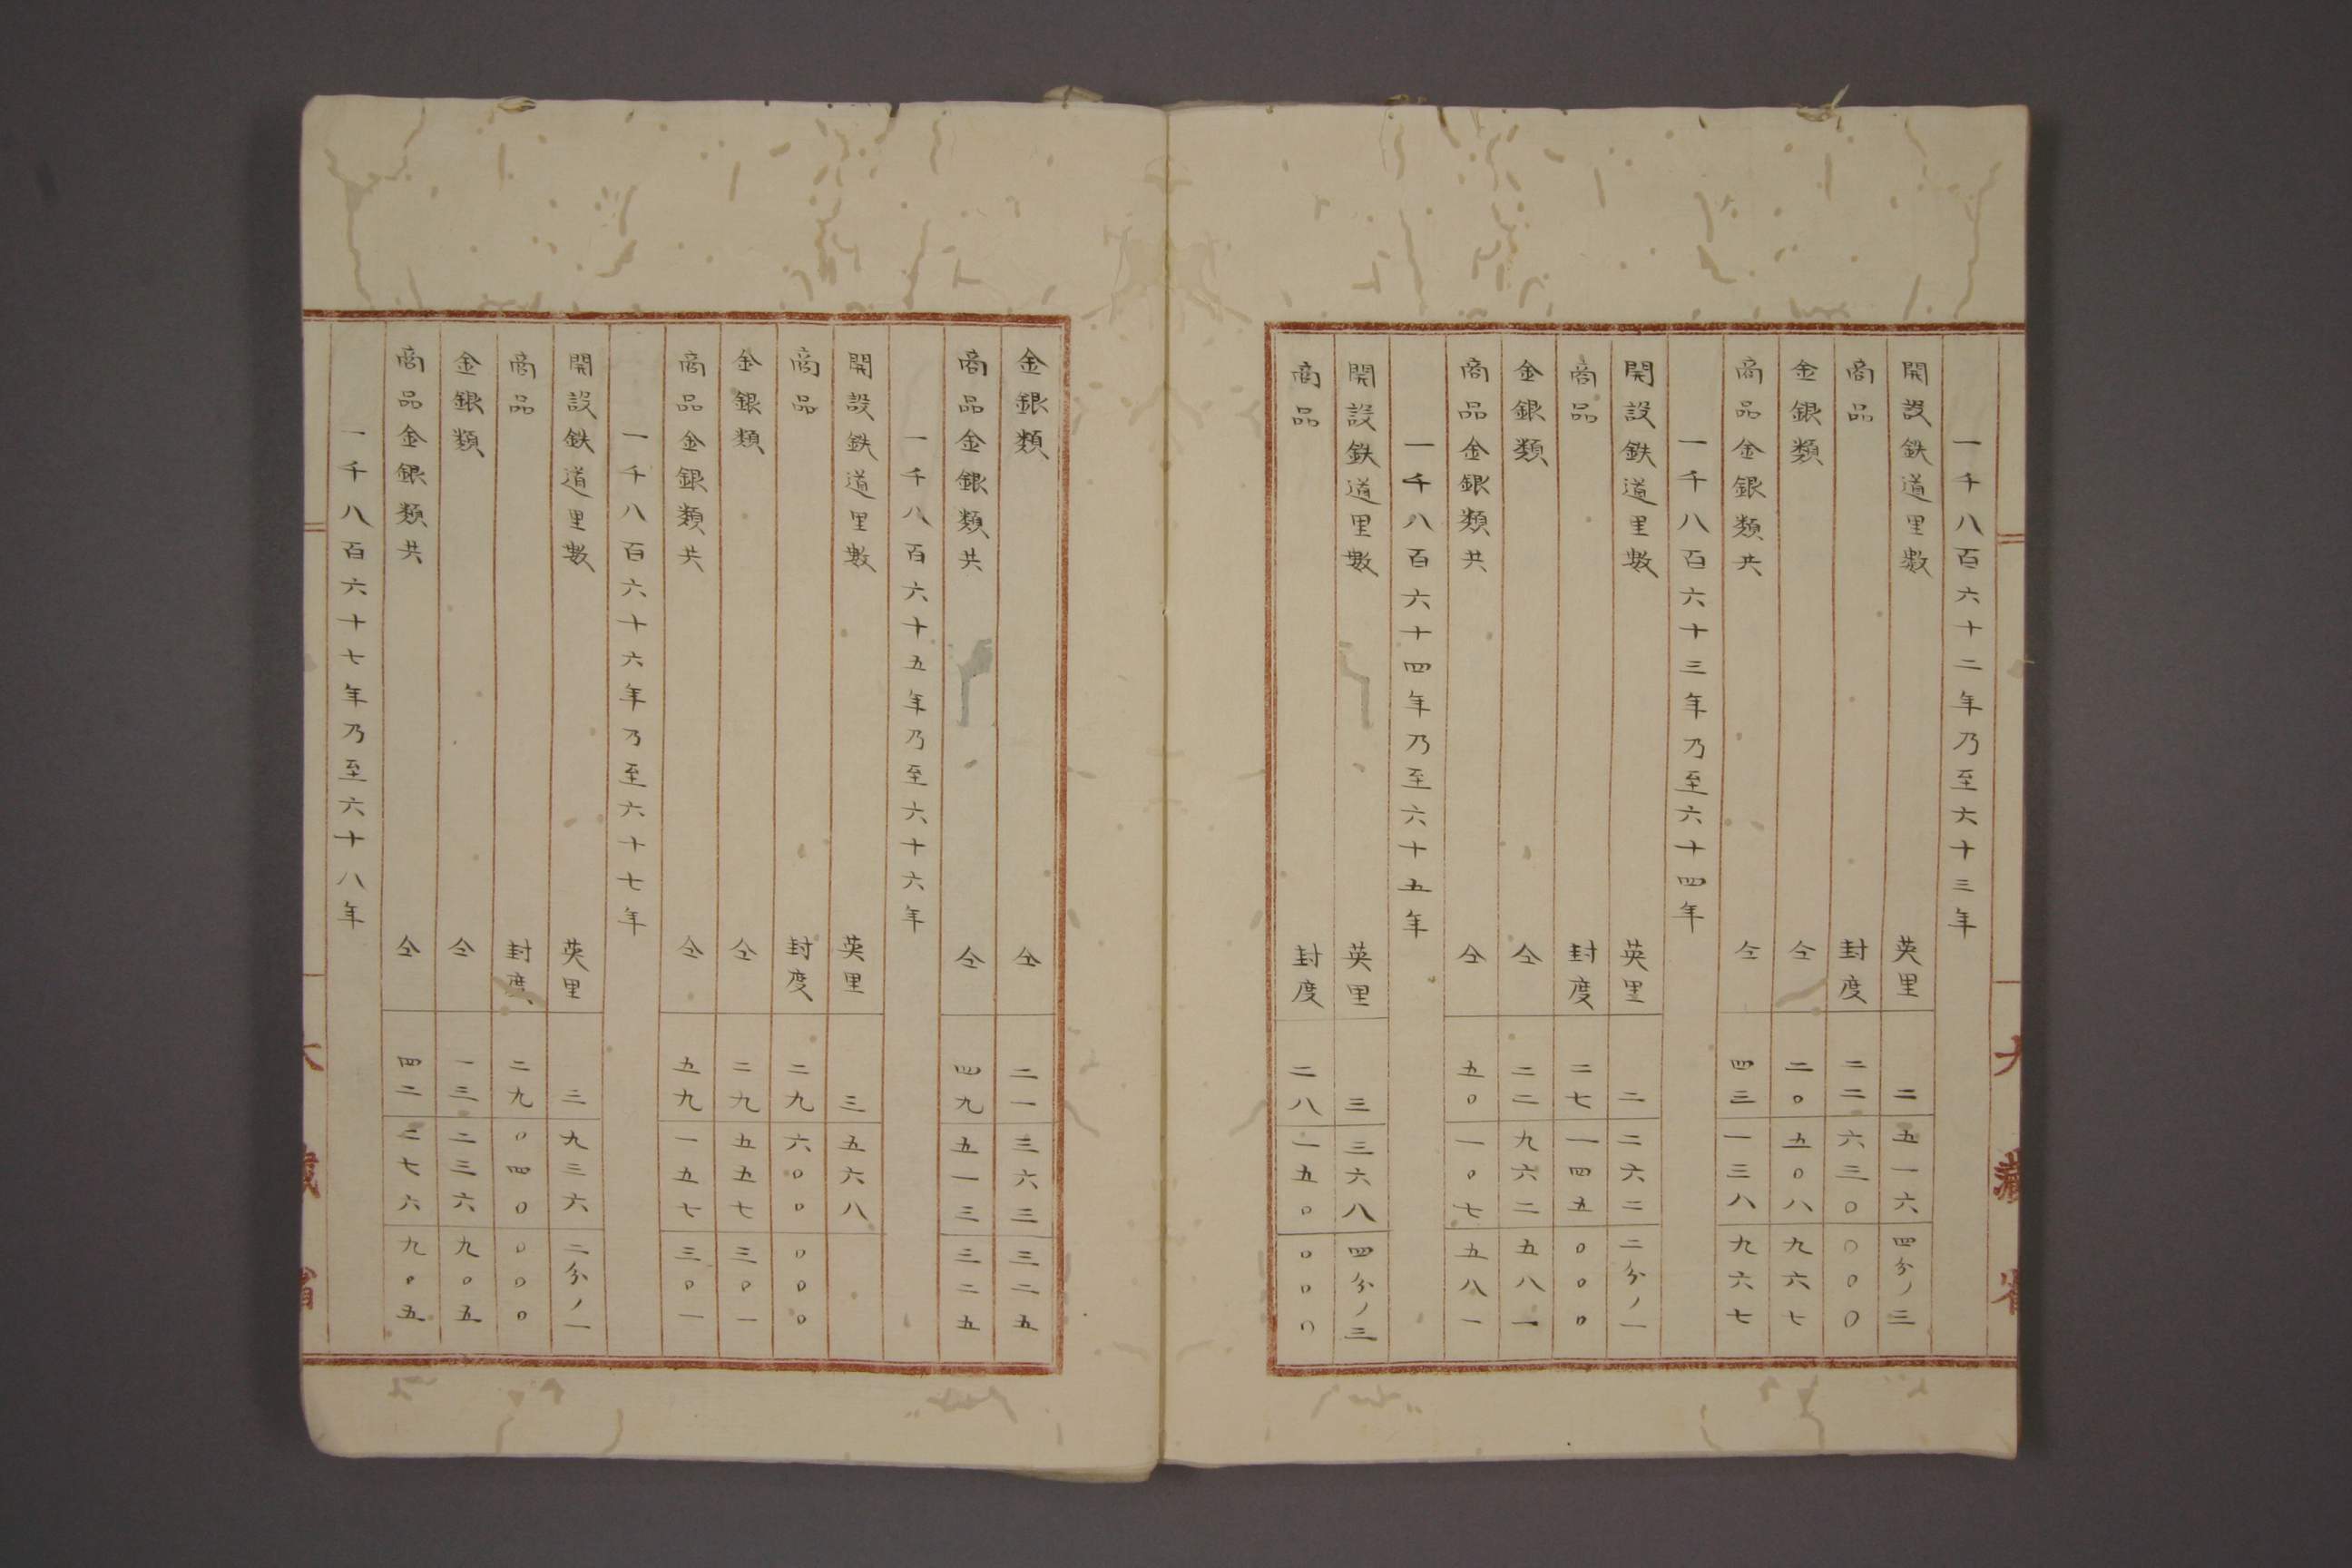 一千八百六十二年乃至六十三年
開設鉄道里數 英里 二五一六四分ノ三
商品 封度 二二六三〇〇〇〇
金銀類 仝 二〇五〇八九六七
商品金銀類共 仝 四三一三八九六七
一千八百六十三年乃至六十四年
開設鉄道里數 英里 二二六二二分ノ一
商品 封度 二七一四五〇〇〇
金銀類 仝 二二九六二五八一
商品金銀類共 仝 五〇一〇七五八一
一千八百六十四年乃至六十五年
開設鉄道里數 英里 三三六八四分ノ三
商品 封度 二八一五〇〇〇〇
大藏省
金銀類 仝 二一三六三三二五
商品金銀類共 仝 四九五一三三二五
一千八百六十五年乃至六十六年
開設鉄道里數 英里 三五六八
商品 封度 二九六〇〇〇〇〇
金銀類 仝 二九五五七三〇一
商品金銀類共 仝 五九一五七三〇一
一千八百六十六年乃至六十七年
開設鉄道里數 英里 三九三六二分ノ一
商品 封度 二九〇四〇〇〇〇
金銀類 仝 一三二三六九〇五
商品金銀類共 仝 四二二七六九〇五
一千八百六十七年乃至六十八年